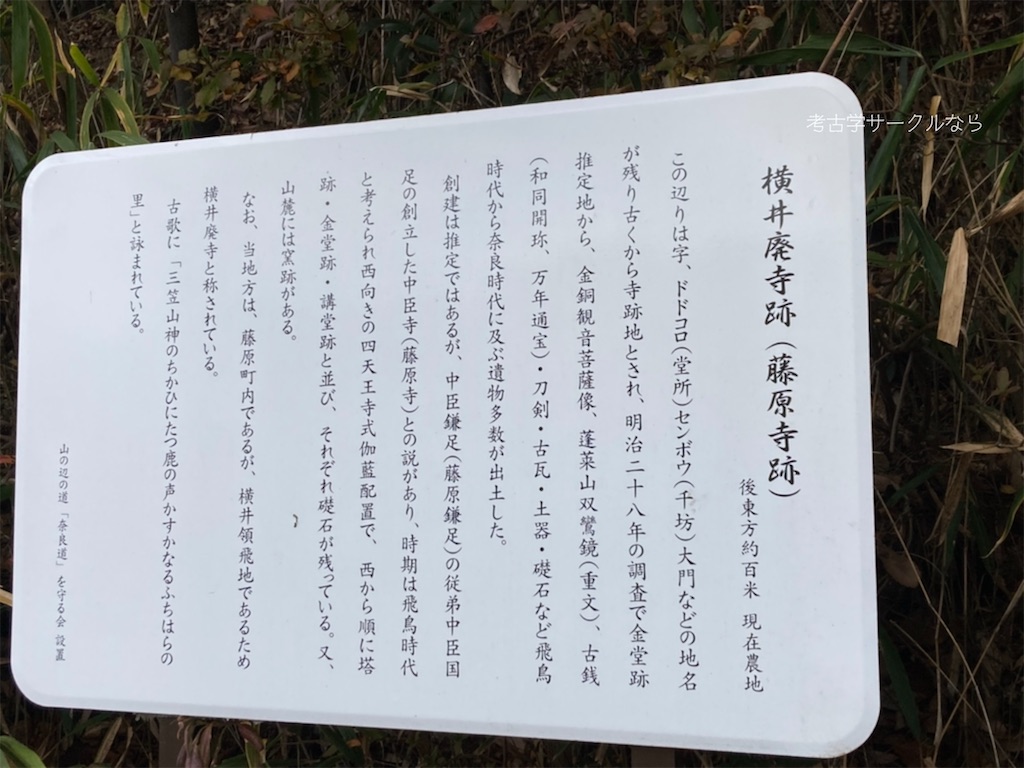 考古学サークルなら
横井廃寺跡(藤原寺跡)
後東方約百米 現在農地
この辺りは字、ドドコロ(堂所)センボウ(千坊)大門などの地名
が残り古くから寺跡地とされ、明治二十八年の調査で金堂跡
推定地から、金銅観音菩薩像、蓬莱山双鸞鏡(重文)、古銭
(和同開珎、万年通宝)・刀剣・古瓦・土器・礎石など飛鳥
時代から奈良時代に及ぶ遺物多数が出土した。
創建は推定ではあるが、中臣鎌足(藤原鎌足)の従弟中臣国
足の創立した中臣寺(藤原寺)との説があり、時期は飛鳥時代
と考えられ西向きの四天王寺式伽藍配置で、西から順に塔
跡・金堂跡・講堂跡と並び、それぞれ礎石が残っている。又、
山麓には窯跡がある。
なお、当地方は、藤原町内であるが、横井領飛地であるため
横井廃寺と称されている。
古歌に「三笠山神のちかひにたつ鹿の声かすかなるふちはらの
里」と詠まれている。
山の辺の道「奈良道」を守る会 設置